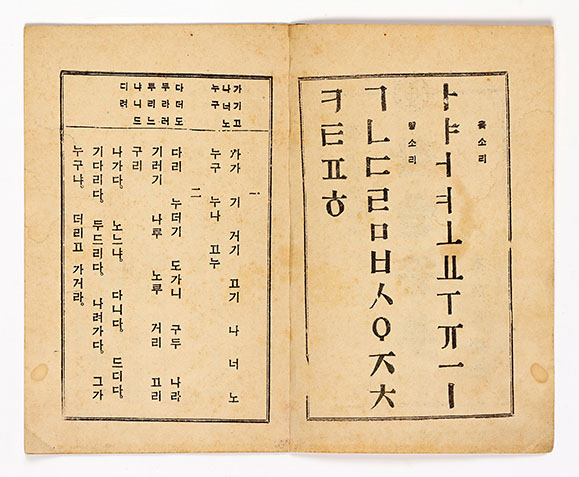 홀소리
ㅏㅑㅓㅕㅗㅛㅜㅠㅡㅣ
닿소리
ㄱㄴㄷㄹㅁㅂㅅㅇㅈㅊ
ㅋㅌㅍㅎ
가기고
나너노
누구
다더도
두라러
루리느
냐니드
디려
一
가가 기 거기 고기 나 너 노
누구 누나 고누
二
다리 누더기 도가니 구두 나라
기러기 나루 노루 거리 고리
구리
나가다. 노느냐. 다니다. 드디다.
기다리다. 두드리다. 나려가다. 그가
누구냐. 더리고 가거라.